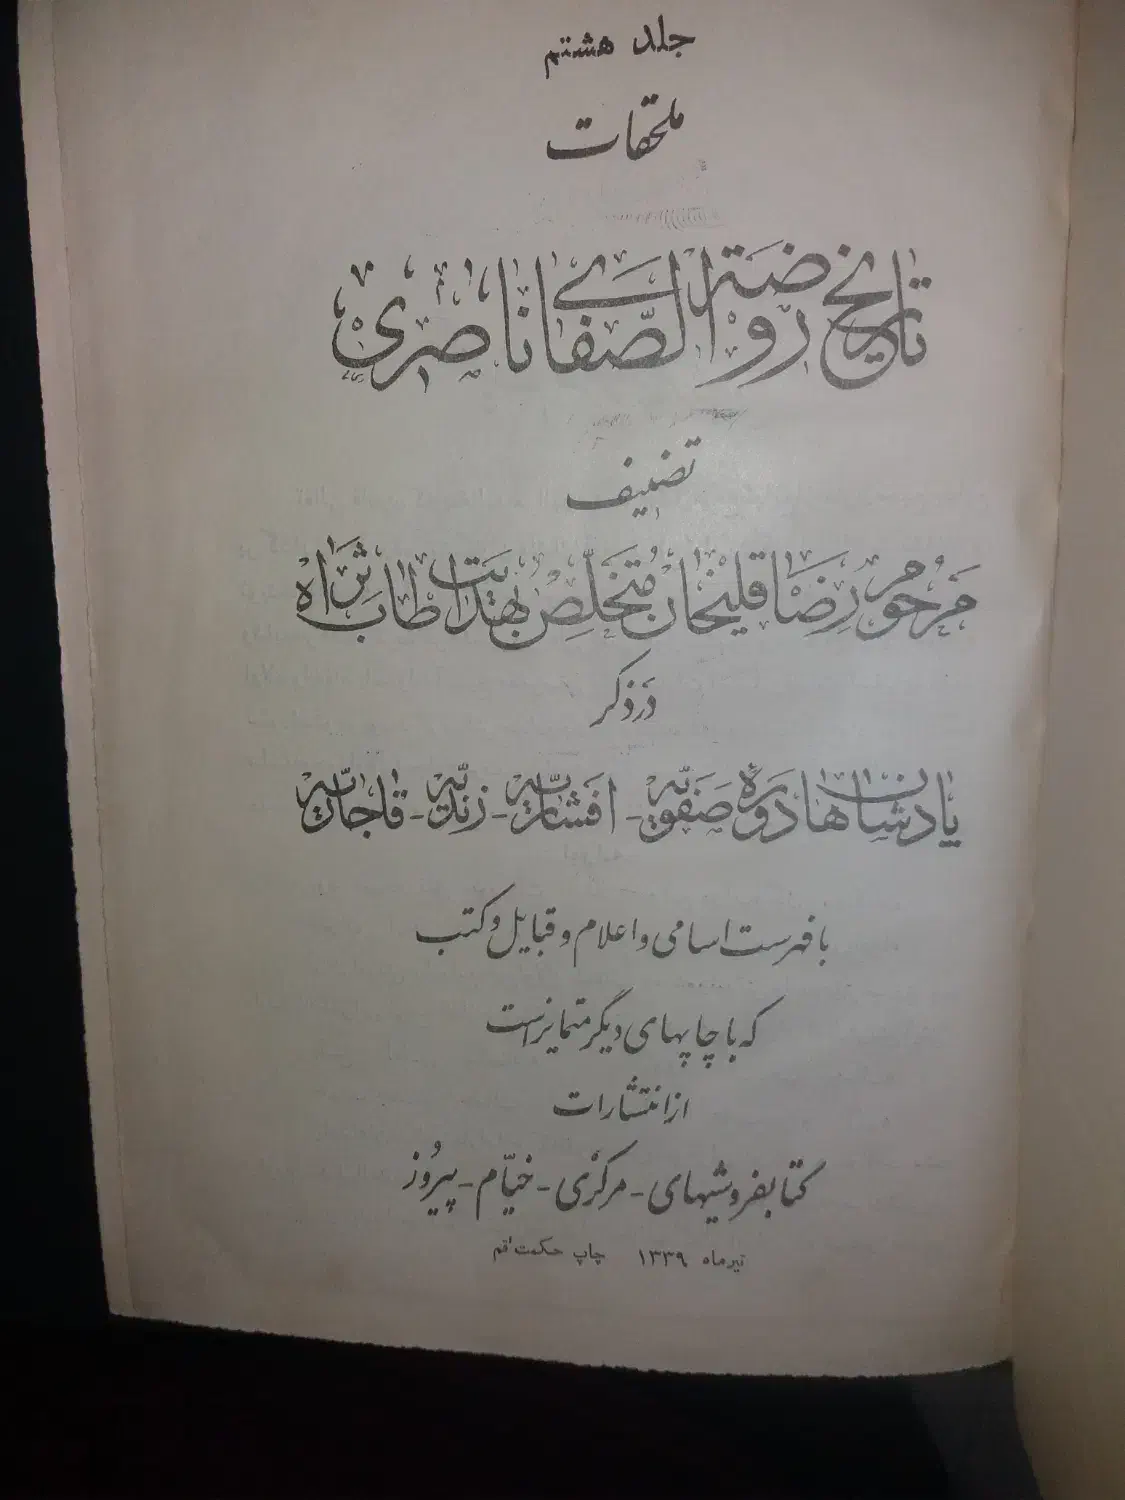 جلد هشتم
ملحقات
تاریخ روضة الصفای ناصری
تصنیف
مرحوم رضاقلیخان متخلص بهدایت طاب ثراه
در ذکر
پادشاهان دوره صفویه - افشاریه - زندیه - قاجاریه
با فهرست اسامی و اعلام و قبایل و کتب
که با چاپهای دیگر متمایز است
از انتشارات
کتابفروشیهای - مرکزی - خیّام - پیروز
تیرماه ۱۳۳۹ چاپ حکمت قم